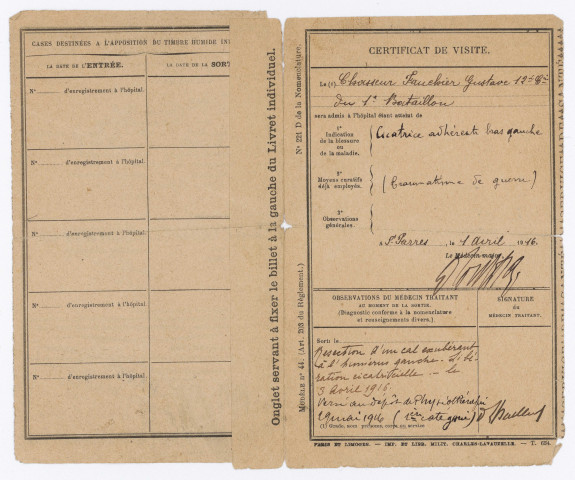 CASES DESTINÉES A L'APPOSITION DU TIMBRE HUMIDE IN
LA DATE DE L'ENTRÉE.
LA DATE DE LA SORT
N° d'enregistrement à l'hôpital.
N° d'enregistrement à l'hôpital.
N° d'enregistrement à l'hôpital.
N° d'enregistrement à l'hôpital.
N° d'enregistrement à l'hôpital.
Onglet servant à fixer le billet à la gauche du Livret individuel.
N° 221 D de la Nomenclature.
MODÈLE N° 44. (Art. 203 du Règlement.)
CERTIFICAT DE VISITE.
Le (1) Chasseur Fauchier Gustave 12e Cie
du 1er Bataillon
sera admis à l'hôpital étant atteint de
1°
Indication
de la blessure
ou
de la maladie.
Cicatrice adhérente bras gauche
2°
Moyens curatifs
déjà employés.
(Traumatisme de guerre)
3°
Observations
générales.
A St Parres, le 1 Avril 1916.
Le Médecin-major
OBSERVATIONS DU MÉDECIN TRAITANT
AU MOMENT DE LA SORTIE.
(Diagnostic conforme à la nomenclature
et renseignements divers.)
SIGNATURE
du
MÉDECIN TRAITANT.
Sorti le
Resection d'un cal exubérant
à l'humérus gauche. Libé
ration cicatricielle. le
3 avril 1916
au dépôt de Physiothérapie
29 mai 1916 (1ère catégorie)
(1) Grade, nom, prénoms, corps ou service
PARIS ET LIMOGES. — IMP. ET LIB. MILIT. CHARLES-LAVAUZELLE. — T. 624.